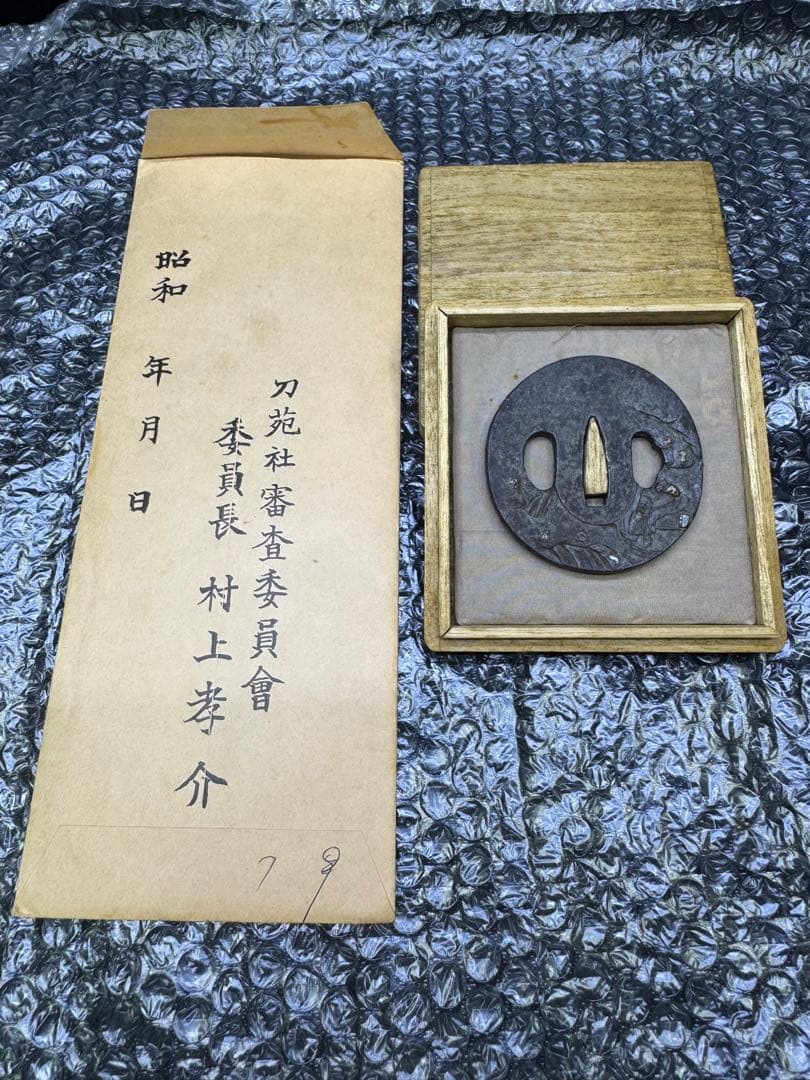 刀苑社審査委員會
委員長 村上孝介
昭和 年 月 日
79